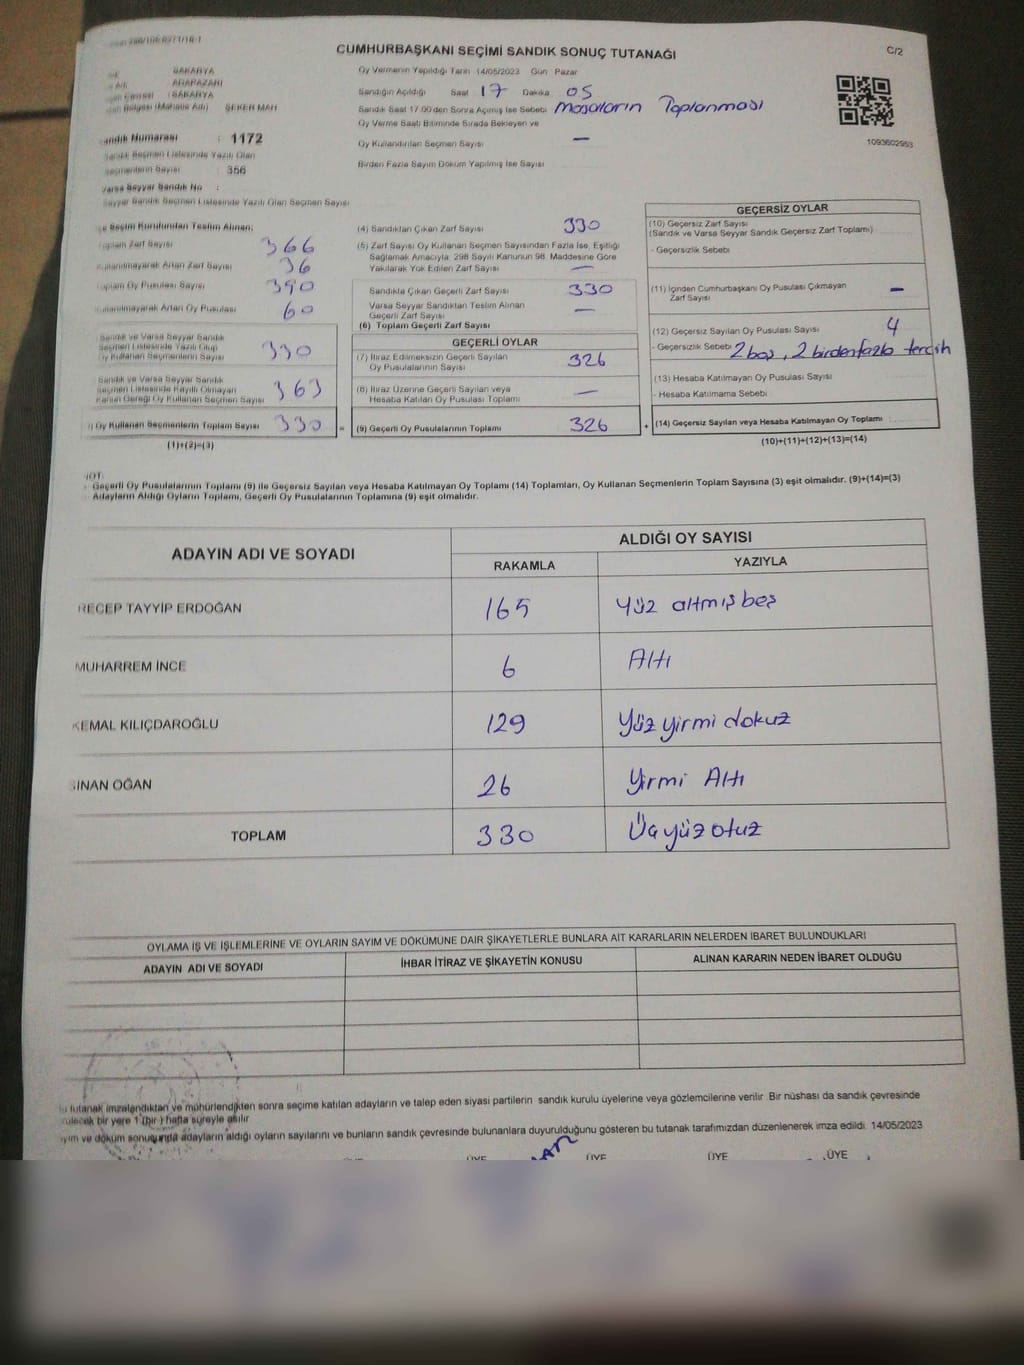 CUMHURBAŞKANI SEÇİMİ SANDIK SONUÇ TUTANAĞI
C/2
SAKARYA
ADAPAZARI
SAKARYA
ŞEKER MAH
Oy Vermenin Yapıldığı Tarih 14/05/2023 Gün Pazar
Sandığın Açıldığı Saat 17 Dakika 05
Sandık Saat 17.00'den Sonra Açılmış İse Sebebi Masaların Toplanması
Oy Verme Saati Bitiminde Sırada Bekleyen ve
Oy Kullandırılan Seçmen Sayısı —
Birden Fazla Sayım Döküm Yapılmış İse Sayısı
1093602953
Sandık Numarası : 1172
Sandık Seçmen Listesinde Yazılı Olan
Seçmenlerin Sayısı : 356
Varsa Seyyar Sandık No :
Seyyar Sandık Seçmen Listesinde Yazılı Olan Seçmen Sayısı
İlçe Seçim Kurulundan Teslim Alınan;
Toplam Zarf Sayısı 366
Kullanılmayarak Artan Zarf Sayısı 36
Toplam Oy Pusulası Sayısı 390
Kullanılmayarak Artan Oy Pusulası 60
Sandık ve Varsa Seyyar Sandık
Seçmen Listesinde Yazılı Olup
Oy Kullanan Seçmenlerin Sayısı 330
Sandık ve Varsa Seyyar Sandık
Seçmen Listesinde Kayıtlı Olmayan
Kanun Gereği Oy Kullanan Seçmen Sayısı 363
Oy Kullanan Seçmenlerin Toplam Sayısı 330 =
(1)+(2)=(3)
(4) Sandıktan Çıkan Zarf Sayısı 330
(5) Zarf Sayısı Oy Kullanan Seçmen Sayısından Fazla İse, Eşitliği
Sağlamak Amacıyla, 298 Sayılı Kanunun 98. Maddesine Göre
Yakılarak Yok Edilen Zarf Sayısı —
Sandıkta Çıkan Geçerli Zarf Sayısı 330
Varsa Seyyar Sandıktan Teslim Alınan
Geçerli Zarf Sayısı —
(6) Toplam Geçerli Zarf Sayısı
GEÇERLİ OYLAR
(7) İtiraz Edilmeksizin Geçerli Sayılan
Oy Pusulalarının Sayısı 326
(8) İtiraz Üzerine Geçerli Sayılan veya
Hesaba Katılan Oy Pusulası Toplamı —
(9) Geçerli Oy Pusulalarının Toplamı 326 +
GEÇERSİZ OYLAR
(10) Geçersiz Zarf Sayısı
(Sandık ve Varsa Seyyar Sandık Geçersiz Zarf Toplamı)
- Geçersizlik Sebebi
(11) İçinden Cumhurbaşkanı Oy Pusulası Çıkmayan
Zarf Sayısı —
(12) Geçersiz Sayılan Oy Pusulası Sayısı 4
- Geçersizlik Sebebi 2 boş, 2 birden fazla tercih
(13) Hesaba Katılmayan Oy Pusulası Sayısı
- Hesaba Katılmama Sebebi
(14) Geçersiz Sayılan veya Hesaba Katılmayan Oy Toplamı
(10)+(11)+(12)+(13)=(14)
NOT:
Geçerli Oy Pusulalarının Toplamı (9) ile Geçersiz Sayılan veya Hesaba Katılmayan Oy Toplamı (14) Toplamları, Oy Kullanan Seçmenlerin Toplam Sayısına (3) eşit olmalıdır. (9)+(14)=(3)
Adayların Aldığı Oyların Toplamı, Geçerli Oy Pusulalarının Toplamına (9) eşit olmalıdır.
ADAYIN ADI VE SOYADI
ALDIĞI OY SAYISI
RAKAMLA YAZIYLA
RECEP TAYYİP ERDOĞAN 165 Yüz altmış beş
MUHARREM İNCE 6 Altı
KEMAL KILIÇDAROĞLU 129 Yüz yirmi dokuz
SİNAN OĞAN 26 Yirmi Altı
TOPLAM 330 Üçyüz otuz
OYLAMA İŞ VE İŞLEMLERİNE VE OYLARIN SAYIM VE DÖKÜMÜNE DAİR ŞİKAYETLERLE BUNLARA AİT KARARLARIN NELERDEN İBARET BULUNDUKLARI
ADAYIN ADI VE SOYADI İHBAR İTİRAZ VE ŞİKAYETİN KONUSU ALINAN KARARIN NEDEN İBARET OLDUĞU
tutanak imzalandıktan ve mühürlendikten sonra seçime katılan adayların ve talep eden siyasi partilerin sandık kurulu üyelerine veya gözlemcilerine verilir. Bir nüshası da sandık çevresinde
bir yere 1 (bir) hafta süreyle asılır
ve döküm sonuçunda adayların aldığı oyların sayılarını ve bunların sandık çevresinde bulunanlara duyurulduğunu gösteren bu tutanak tarafımızdan düzenlenerek imza edildi. 14/05/2023
ÜYE ÜYE ÜYE ÜYE